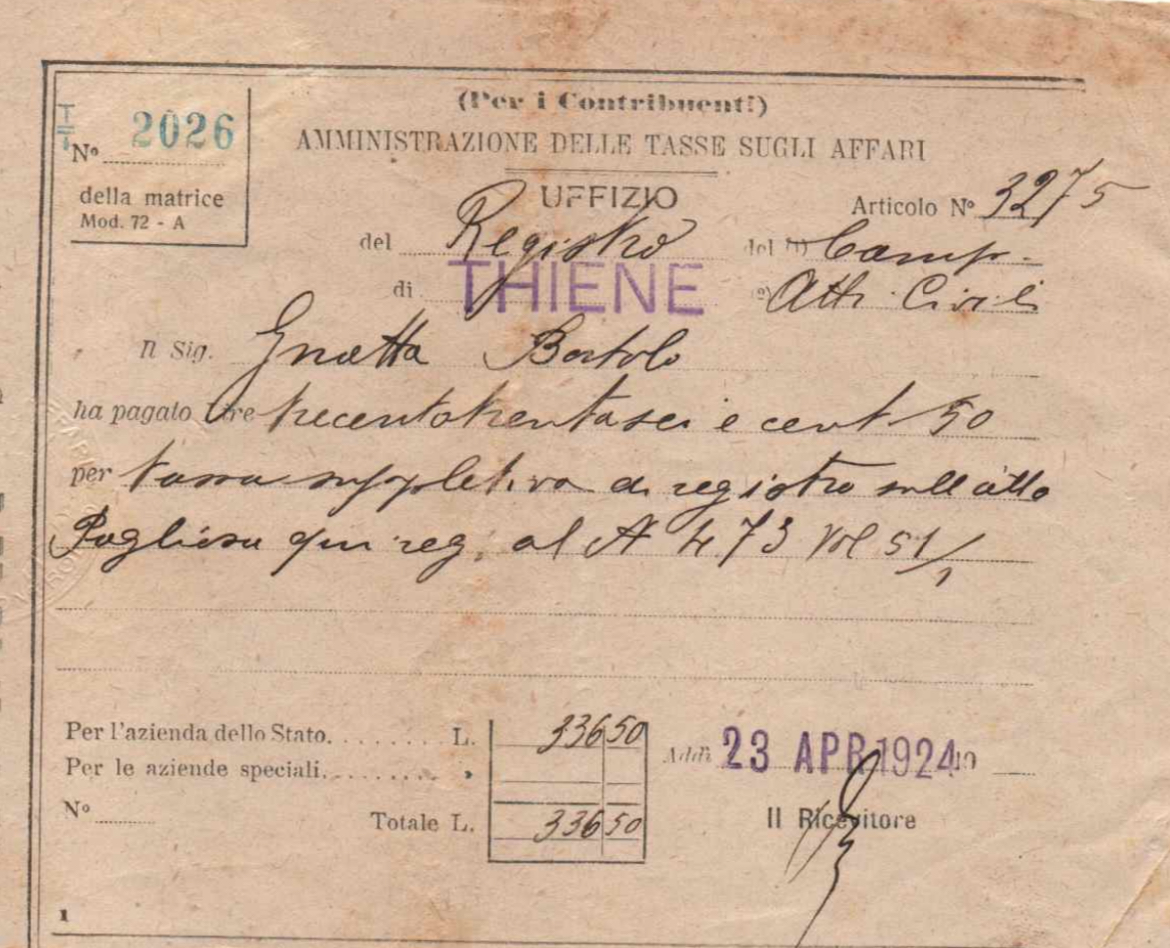 (Per i Contribuenti)
AMMINISTRAZIONE DELLE TASSE SUGLI AFFARI
Nº 2026
della matrice
Mod. 72 - A
UFFIZIO
Articolo Nº 3275
del Registro del (1) Camp.
di THIENE (2) Atti Civili
Il Sig. Gnatta Bortolo
ha pagato lire trecentotrentasei e cent 50
per tassa suppletiva di registro sull'atto
qui reg. al N 473 Vol 51/1
Per l'azienda dello Stato. . . . . . . . L. 336 50
Per le aziende speciali. . . . . . . . .
Nº Totale L. 336 50
Addì 23 APR 1924 19
Il Ricevitore
1